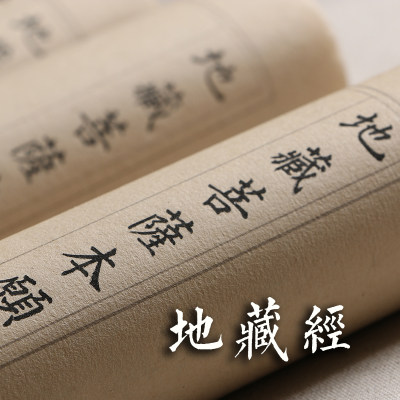 地藏菩薩本願
地藏菩薩
地藏經